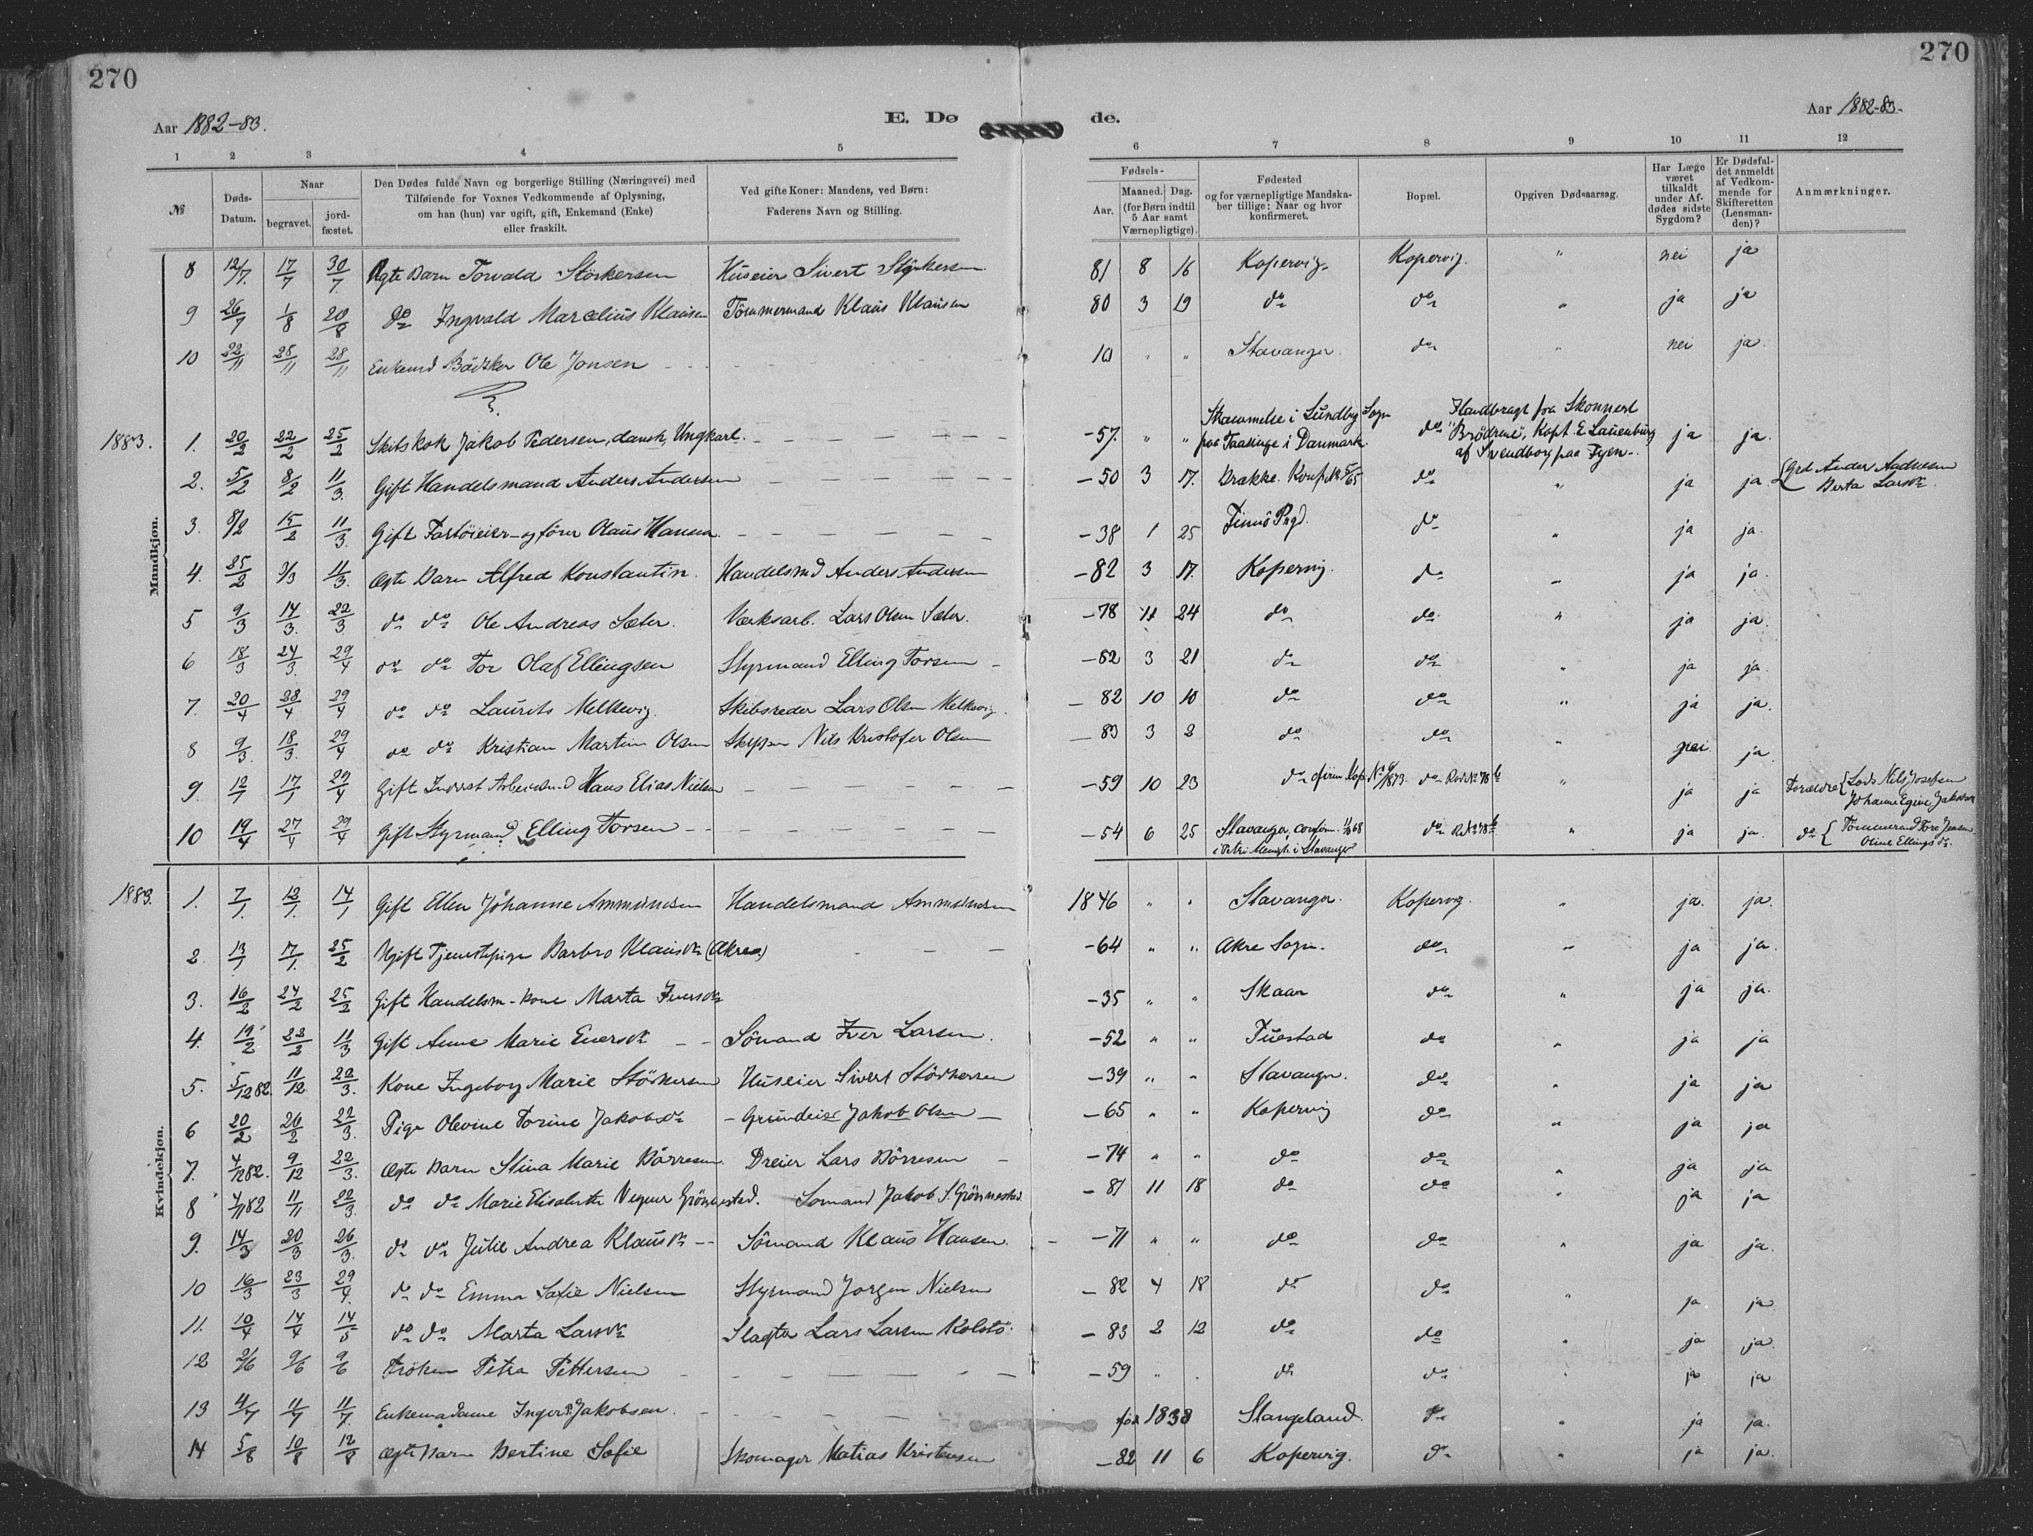 270
270
Aar 1882-83.
E. Dø de.
Aar 1882-83.
1 2 3 4 5 6 7 8 9 10 11 12
№
Døds-Datum.
Naar
begravet.
jord-fæstet.
Den Dødes fulde Navn og borgerlige Stilling (Næringsvei) med
Tilføiende for Voxnes Vedkommende af Oplysning,
om han (hun) var ugift, gift, Enkemand (Enke)
eller fraskilt.
Ved gifte Koner: Mandens, ved Børn:
Faderens Navn og Stilling.
Fødsels-
Aar.
Maaned. Dag.
(for Børn indtil
5 Aar samt
Værnepligtige).
Fødested
og for værnepligtige Mandska-
ber tillige: Naar og hvor
konfirmeret.
Bopæl.
Opgiven Dødsaarsag.
Har Læge
været
tilkaldt
under Af-
dødes sidste
Sygdom?
Er Dødsfal-
det anmeldt
af Vedkom-
mende for
Skifteretten
(Lensman-
den)?
Anmærkninger.
Mandkjøn.
8 12/7 17/7 30/7 Ægte Barn Torvald Störkersen Huseier Sivert Störkersen 81 8 16 Kopervig Kopervig. " nei ja
9 26/7 1/8 20/8 do Ingvald Marcelius Klausen Tömmermand Klaus Klausen 80 3 19 do do " ja ja
10 22/11 25/11 28/11 Enkemd Bödker Ole Jonsen 10 " " Stavanger. do nei ja.
1883. 1. 20/2 22/2 25/2 Skibskok Jakob Pedersen, dansk, Ungkarl. -57. " " i Lundby Sogn
paa Taasinge i Danmark. do Skonnert
"Brödrene", Kapt. E Lauenburg
af Svendborg paa Fyen. ja ja.
2. 5/2 8/2 11/3 Gift Handelsmand Anders Andersen -50 3 17. do " ja ja. Berta Larsdr.
3. 8/2 15/2 11/3. Gift Fartöieier og förer Olaus Hansen -38 1 25 Finnö Prgd. do " ja ja.
4. 25/2 9/3 11/3. Ægte Barn Alfred Konstantin. Handelsmd Anders Andersen -82 3 17. Kopervig. do " ja ja.
5 9/3 14/3. 22/3 do do Ole Andreas Sæter. Værksarb. Lars Olsen Sæter. -78 11 24 do do " ja ja.
6 18/3 24/3. 29/4 do do Tor Olaf Ellingsen Styrmand Elling Torsen -82 3 21 do do " ja ja.
7. 20/4 28/4 29/4 do do Laurits Melkevig. Skibsreder Lars Olsen Melkevig. -82 10 10 do do " ja ja.
8 9/3. 18/3. 29/4 do do Kristian Martin Olsen Skipper Nils Kristofer Olsen -83 3 2 do do " nei ja.
9. 12/1 17/1 29/4 Gift Hans Elias Nielsen -59 10 23 do do " ja ja Forældre { Lods Nils Josefsen
10 19/4 27/4 29/4 Gift Styrmand Elling Torsen -54 6 25 Stavanger, i Stavanger do " ja ja. do {
Kvindekjøn.
1883. 1. 7/1. 12/1. 14/1 Gift Ellen Johanne Ammundsen Handelsmand Ammundsen 1846 " " Stavanger. Kopervig. " ja. ja.
2. 13/1 17/1. 25/2 Ugift Tjenestepige Barbro Klausdr (Akrea) -64 " " Akre Sogn. do " ja ja.
3. 16/2 24/2 25/2 Gift Handelsm-kone Marta Iversdr -35 " " Skaar do " ja ja.
4. 19/2 23/2 11/3 Gift Anne Marie Eversdr Sömand Iver Larsen. -52 " " Tuestad do " ja ja
5. 5/12 82. 11/12. 22/3. Kone Ingeborg Marie Störkersen Huseier Sivert Störkersen -39 " " Stavanger. do " ja ja
6 20/2 26/2 22/3. Pige Olevine Torine Jakobsdr Grundeier Jakob Olsen -65 " " Kopervig do " ja ja
7. 4/12 82. 9/12 22/3. Ægte Barn Stina Marie Börresen Dreier Lars Börresen -74 " " do do " ja ja
8 4/11 82 11/11 22/3. do do Marie Elisabeth Grönnestad. Sömand Jakob S. Grönnestad -81 11 18 do do " ja ja
9. 14/3 20/3 26/3. do do Julie Andrea Klausdr Sömand Klaus Hansen. -71 " " do do " ja ja.
10 16/3 23/3 29/4. do do Emma Sofie Nielsen Styrmand Jorgen Nielsen -82 4 18 do do " ja ja.
11. 10/4 14/4 14/5 do do Marta Larsdr Slagter Lars Larsen Kolstö. -83 2 12 do do " ja ja.
12 2/6 9/6 9/6 Fröken Petra Pettersen -59 " . do do ja ja
13 4/7 11/7 11/7. Enkemadame Inger Jakobsen. för 1838 Stangeland. do ja ja.
14 5/8 10/8 12/8 Ægte Barn Bertine Sofie Skomager Matias Kristensen -82 11 6 Kopervig. do " ja ja.